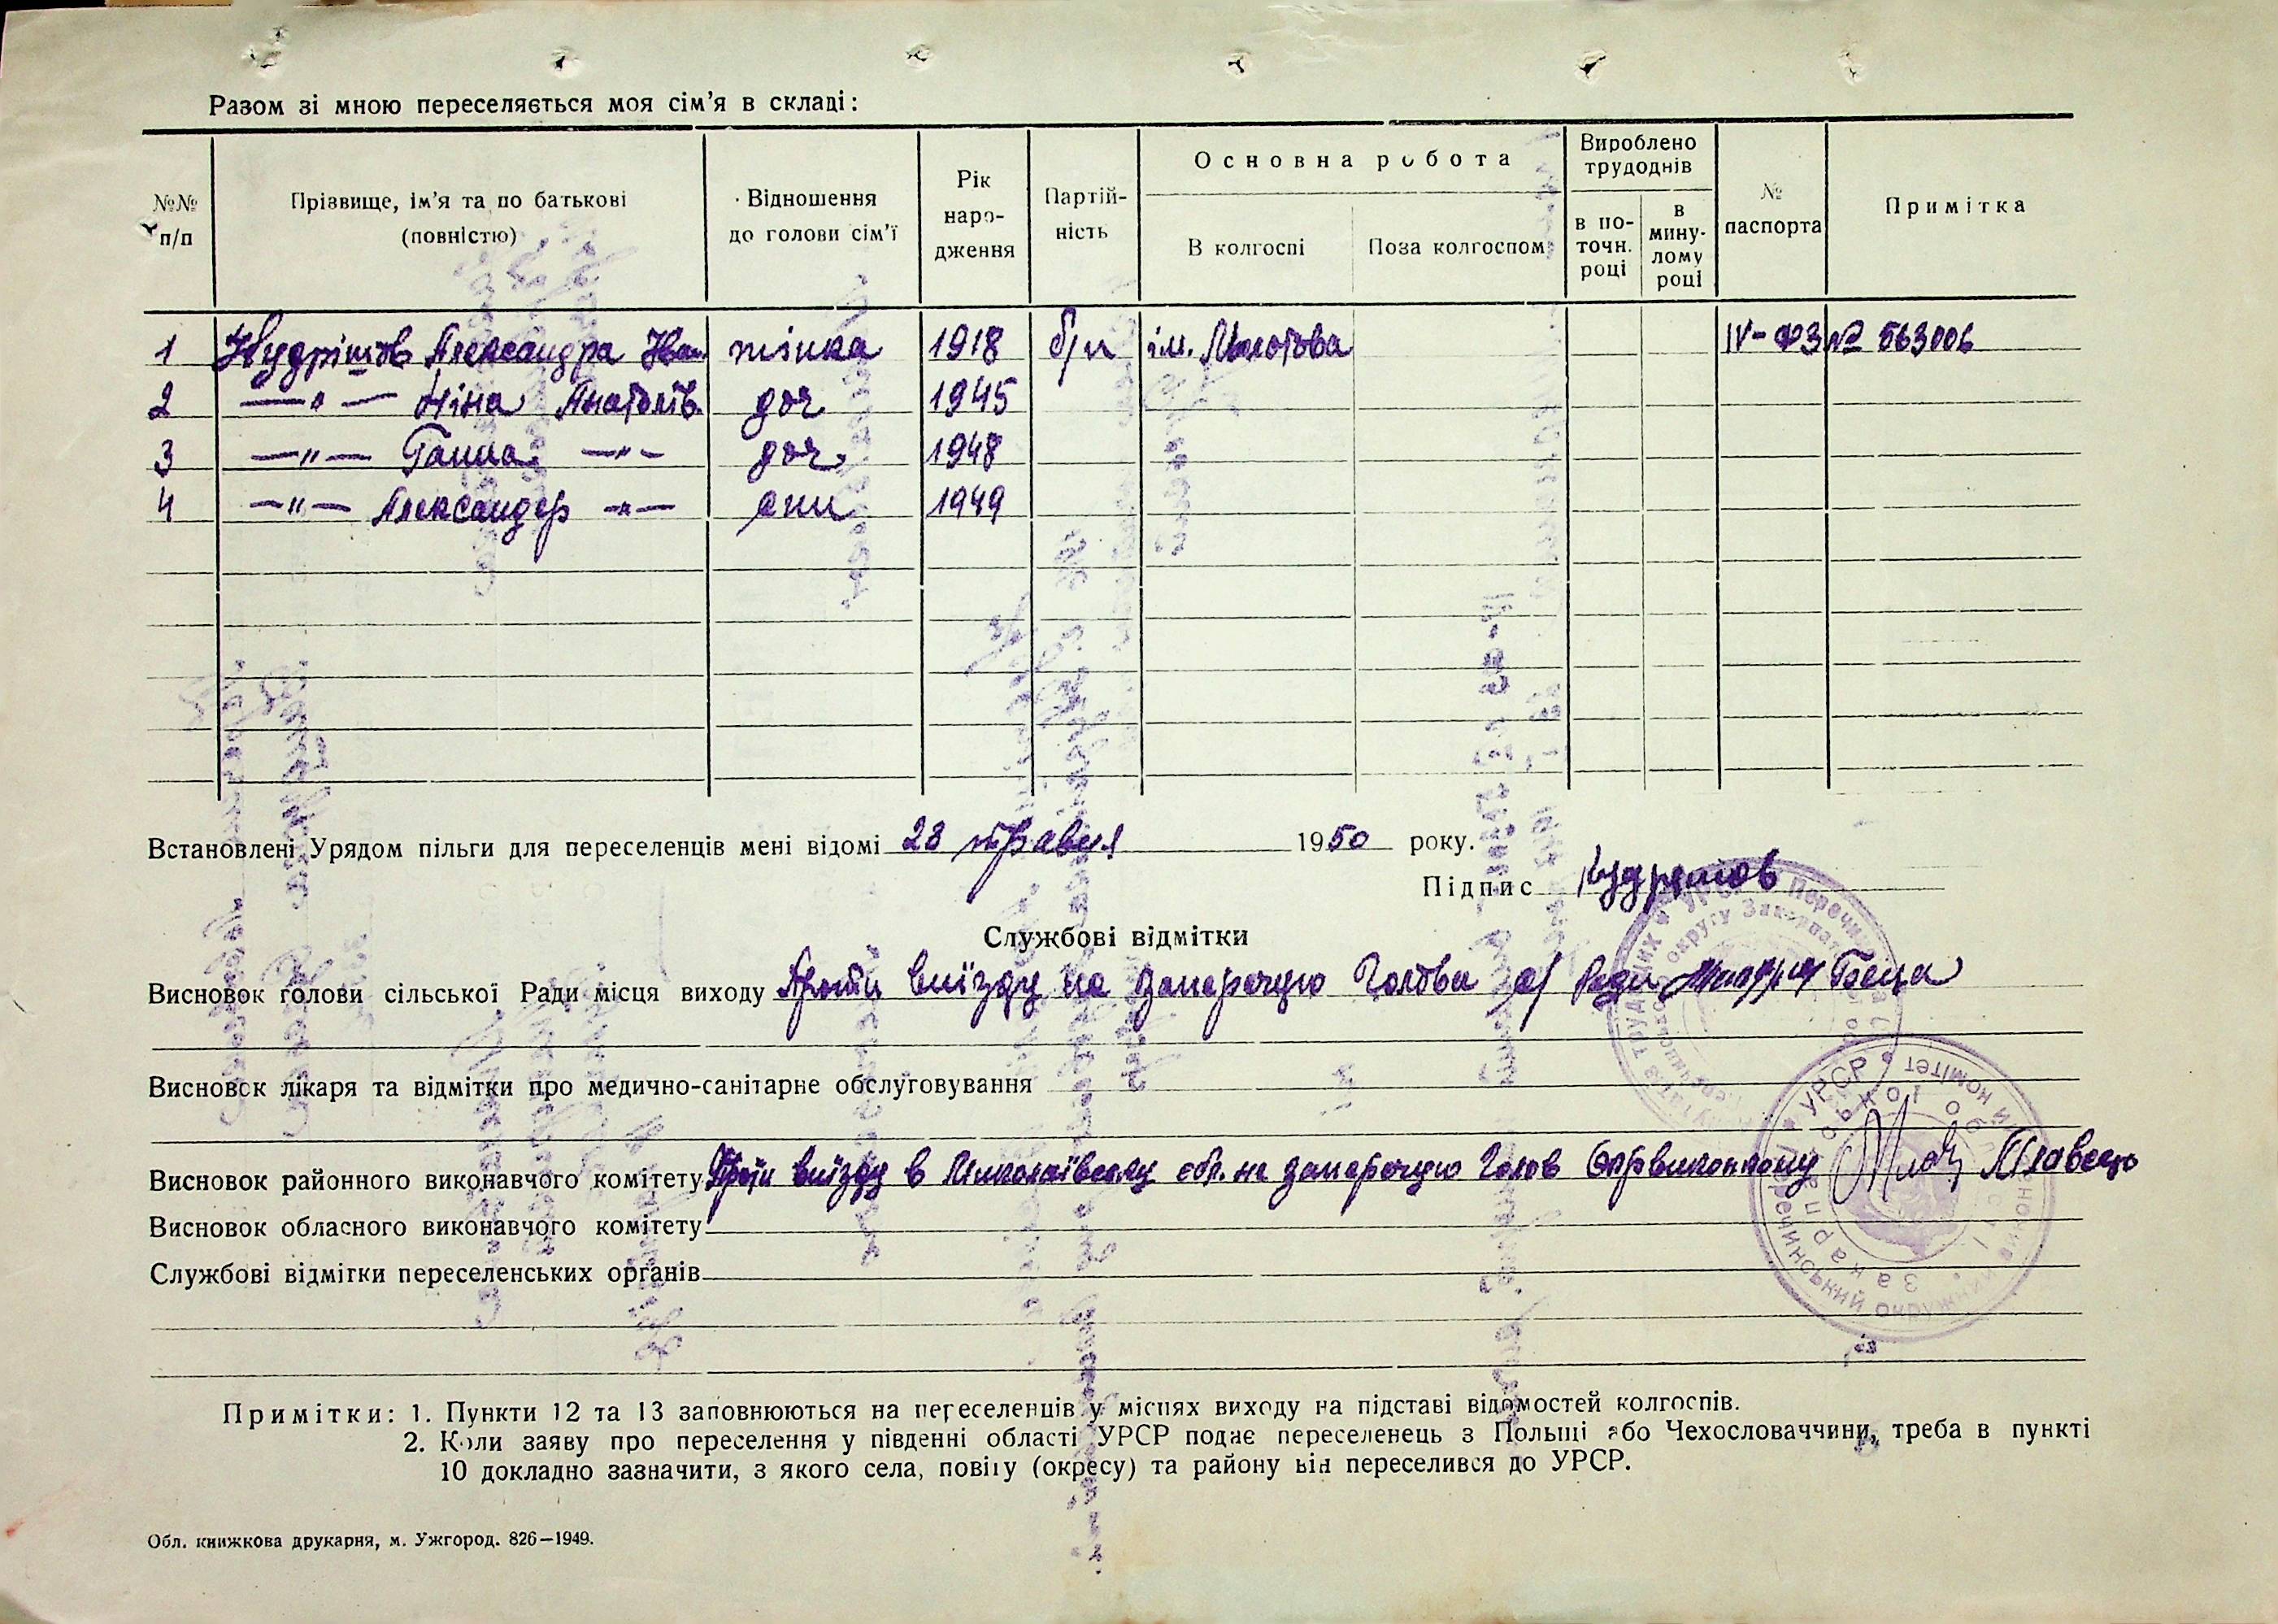 Разом зі мною переселяється моя сім'я в складі:
№№ п/п
Прізвище, ім'я та по батькові (повністю)
Відношення до голови сім'ї
Рік народження
Партійність
Основна робота
В колгоспі
Поза колгоспом
Вироблено трудоднів
в поточн. році
в минулому році
№ паспорта
Примітка
1 Кудряшов Александра Іван. жінка 1918 б/п ім. Молотова IV-ФЗ № 563006
2 —„— Ніна Анатолів. доч. 1945
3 —„— Ганна —„— доч. 1948
4 —„— Александер —„— син 1949
Встановлені Урядом пільги для переселенців мені відомі 23 травня 1950 року.
Підпис Кудряшов
Службові відмітки
Висновок голови сільської Ради місця виходу Проти виїзду не заперечую Голова с/Ради
Висновок лікаря та відмітки про медично-санітарне обслуговування
Висновок районного виконавчого комітету Проти виїзду в Миколаївську обл. не заперечую Голов Окрвиконкому
Висновок обласного виконавчого комітету
Службові відмітки переселенських органів
Примітки: 1. Пункти 12 та 13 заповнюються на переселенців у місцях виходу на підставі відомостей колгоспів.
2. Коли заяву про переселення у південні області УРСР подає переселенець з Польщі або Чехословаччини, треба в пункті
10 докладно зазначити, з якого села, повіту (окресу) та району він переселився до УРСР.
Обл. книжкова друкарня, м. Ужгород. 826—1949.